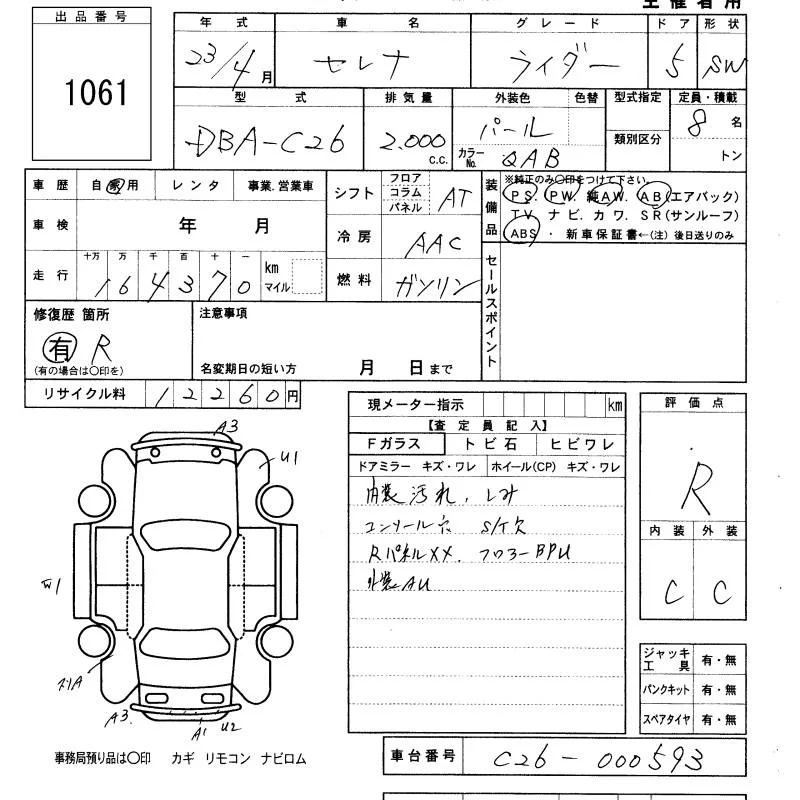 出品番号
1061
年式 車名 グレード ドア 形状
23/4月 セレナ ライダー 5 SW
型式 排気量 外装色 色替 型式指定 定員・積載
DBA-C26 2.000 c.c. パール カラーNo. QAB 類別区分 8名 トン
車歴 自家用 レンタ 事業.営業車
車検 年 月
走行 十万 万 千 百 十 一 km マイル
164370
シフト フロア コラム パネル AT
冷房 AAC
燃料 ガソリン
装備品 ※純正のみ○印をつけて下さい。
PS. PW. 純AW. AB(エアバック)
TV ナビ. カワ. SR(サンルーフ)
ABS ・ 新車保証書←(注) 後日送りのみ
セールスポイント
修復歴 箇所
有 R
(有の場合は○印を)
注意事項
名変期日の短い方 月 日まで
リサイクル料 12260円
現メーター指示 km
【査定員記入】
Fガラス トビ石 ヒビワレ
ドアミラー キズ・ワレ ホイール(CP) キズ・ワレ
内装汚れ, シミ
コンソール穴 S/T欠
RパネルXX. フロアーBPU
外装AU
評価点
R
内装 外装
C C
ジャッキ工具 有・無
パンクキット 有・無
スペアタイヤ 有・無
A3
U1
W1
スリA
A3
A1
U2
事務局預り品は○印 カギ リモコン ナビロム
車台番号 C26-000593